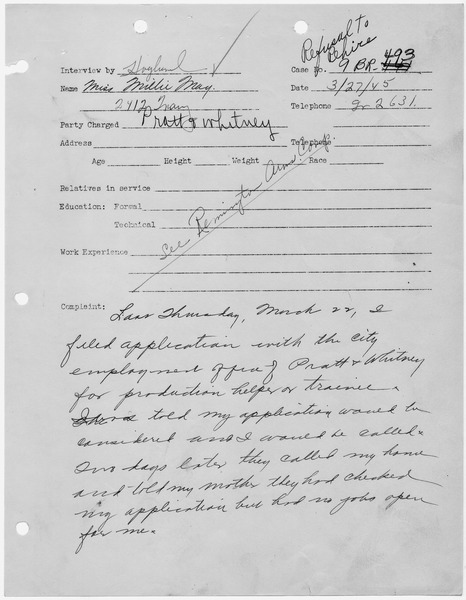 Refusal to
Rehire
Interview by Hoglund Case No. 9 BR 493
Name Miss Millie May Date 3/27/45
2412 Tracy Telephone Gr 2631
Party Charged Pratt & Whitney
Address Telephone
Age Height Weight Race
Relatives in service
Education: Formal
Technical
See Remington Arms Comp.
Work Experience
Complaint: Last Thursday, March 22, I
filed application with the city
employment office of Pratt & Whitney
for production helper or trainee.
told my application would be
considered and I would be called.
Two days later they called my home
and told my mother they had checked
my application but had no jobs open
for me.